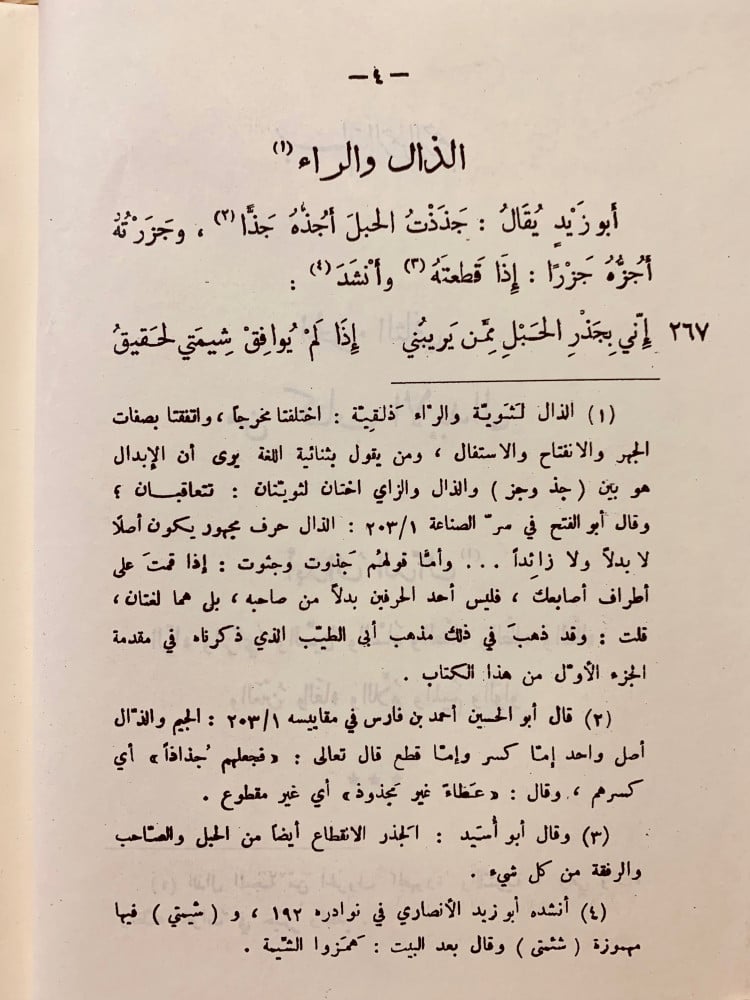 — ٤ —
الذال والراء (١)
أبو زَيْدٍ يُقَالُ : جَذَذْتُ الحبلَ أجُذُّهُ جَذًّا (٢) ، وجَزَرْتُهُ
أجُزُّهُ جَزْرًا : إِذَا قَطعتَهُ (٣) وأنْشَدَ (٤) :
٢٦٧ إِنّي بِجَذْرِ الحَبْلِ مِمَّن يَرِيبُني إِذَا لَمْ يُوافِقْ شِيمَتي لحَقيقُ
(١) الذال لَثَويّة والرّاء ذَلَقِيّة : اختلفتا مخرجاً ، واتفقتا بصفات
الجهر والانفتاح والاستفال ، ومن يقول بثنائية اللغة يرى أن الإبدال
هو بين (جذ وجز) والذال والزاي اختان لثويّتان : تتعاقبان ؛
وقال أبو الفتح في سرّ الصناعة ٢٠٣/١ : الذال حرف مجهور يكون أصلًا
لا بدلاً ولا زائداً ... وأمّا قولهُم جَذوت وجثوت : إذا قمتَ على
أطراف أصابعك ، فليس أحد الحرفين بدلاً من صاحبه ، بل هما لغتان ،
قلت : وقد ذهبَ في ذلك مذهب أبي الطيّب الذي ذكرناه في مقدمة
الجزء الأوّل من هذا الكتاب .
(٢) قال أبو الحسين أحمد بن فارس في مقاييسه ٢٠٣/١ : الجيم والذّال
أصل واحد إمّا كسر وإمّا قطع قال تعالى : «فجعلهم جُذاذاً» أي
كسرهم ، وقال : «عَطاءً غير مَجذوذ» أي غير مقطوع .
(٣) وقال أبو أُسَيد : الجَذر الانقطاع أيضاً من الحبل والصّاحب
والرفقة من كل شيء .
(٤) أنشده أبو زيد الأنصاري في نوادره ١٩٢ ، و (شيمتي) فيها
مهموزة (شئمتى) وقال بعد البيت : هَمَزوا الشّيمة .